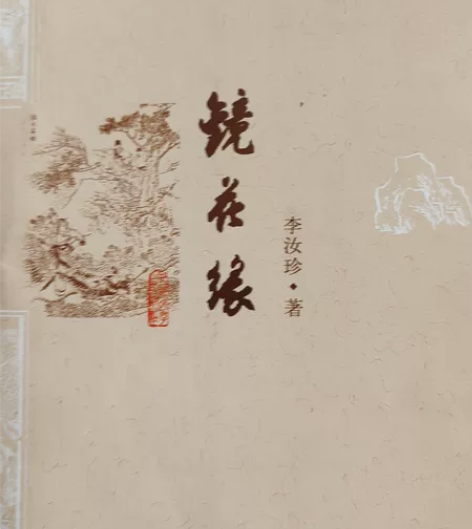 镜花缘
李汝珍·著